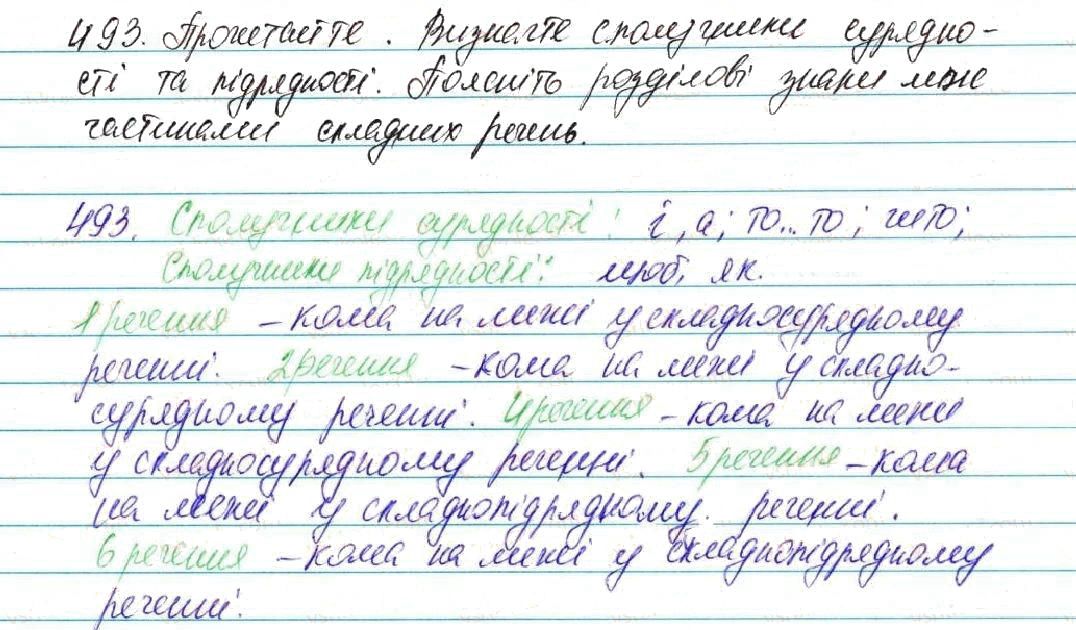 493. Прочитайте. Визначте сполучники сурядно-
сті та підрядності. Поясніть розділові знаки між
частинами складних речень.
493. Сполучники сурядності: і, а; то...то; чито;
Сполучники підрядності: щоб, як.
1 речення – кома на межі у складносурядному
реченні. 2 речення – кома на межі у складно-
сурядному реченні. 4 речення – кома на межі
у складносурядному реченні. 5 речення – кома
на межі у складнопідрядному реченні.
6 речення – кома на межі у складнопідрядному
реченні.